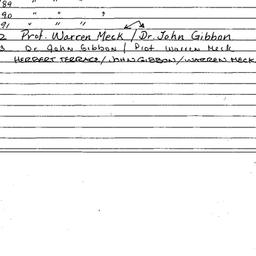 89 " " "
90 " " "
91 " " "
2 Prof. Warren Meck / Dr. John Gibbon
3 Dr John Gibbon / Prof Warren Meck
HERBERT TERRACE / JOHN GIBBON / WARREN MECK